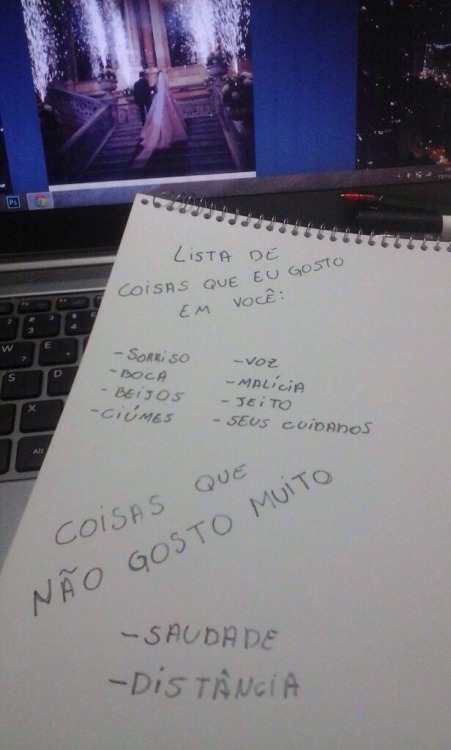 LISTA DE
COISAS QUE EU GOSTO
EM VOCÊ:
-SORRISO
-BOCA
-BEIJOS
-CIÚMES
-VOZ
-MALÍCIA
-JEITO
-SEUS CUIDADOS
COISAS QUE
NÃO GOSTO MUITO
-SAUDADE
-DISTÂNCIA
Ps
2
3
4
W
E
S
D
X
Alt